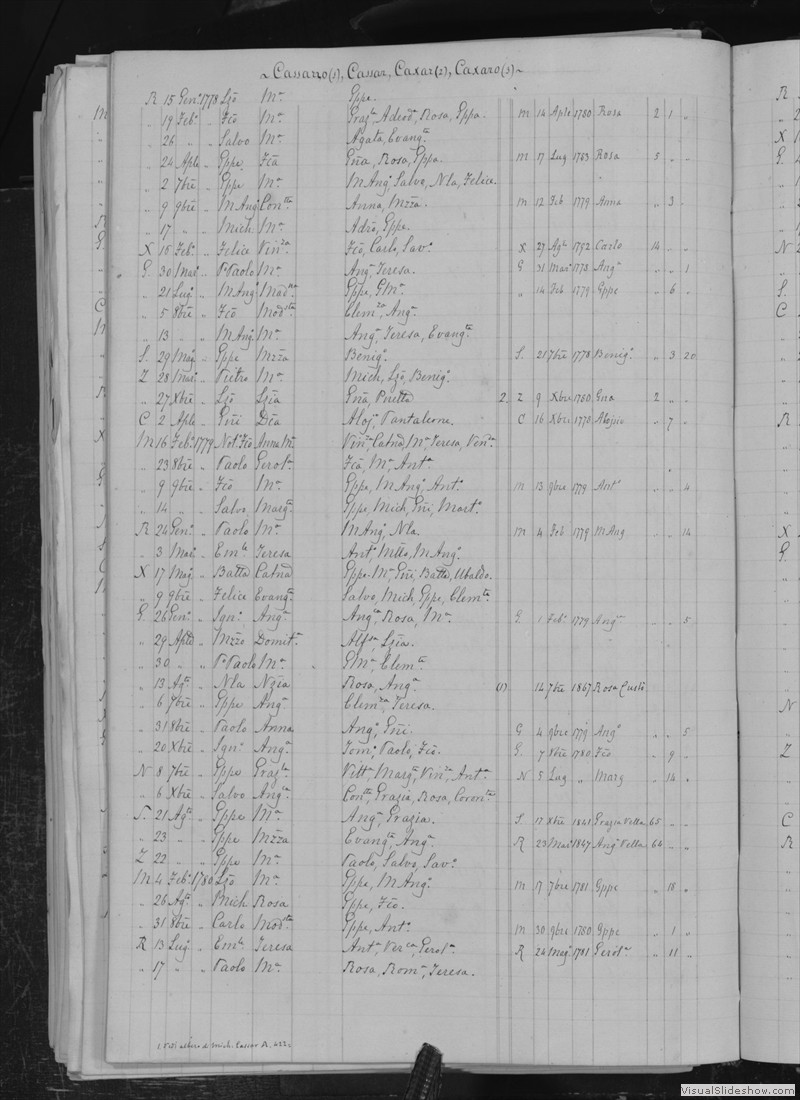 ~ Cassarro (1), Cassar, Caxar (2), Caxaro (3) ~
R 15 Gen.º 1778 Lzõ Mª Gppe.
„ 19 Feb.º „ Fcõ Mª Graz.la Adeod.ª, Rosa, Gppa. m 14 Aple 1780 Rosa 2 1 „
„ 26 „ „ Salvo Mª Agata, Evang.ta
„ 24 Aple „ Gppe Fcã Gña, Rosa, Gppa. m 17 Lug 1783 Rosa 5 „ „
„ 2 7bre „ Gppe Mª M Ang.º Salvo, Nla, Felice.
„ 9 9bre „ M Ang.º Con.tta Anna, Mzzã. m 12 Feb 1779 Anna „ 3 „
„ 17 „ „ Mich Mª Adeo, Gppe.
X 15 Feb.º „ Felice Vin.za Fcõ, Carlo, Sav.º X 27 Ag.to 1792 Carlo 14 „ „
G. 30 Mar.º „ P Paolo Mª Ang.ª Teresa. G 31 Mar.º 1778 Ang.ª „ „ 1
„ 21 Lug.º „ M Ang.º Mad.na Gppe, G Mª. „ 14 Feb 1779 Gppe „ 6 „
„ 5 8bre „ Fcõ Mod.sta Clem.za, Ang.ª
„ 13 „ „ M Ang.º Mª Ang.ª Teresa, Evang.ta
S. 29 Mag „ Gppe Mzzã Benig.º S. 21 7bre 1778 Benig.º „ 3 20
Z 28 Mar.º „ Pietro Mª Mich, Lzõ, Benig.º
„ 27 Xbre „ Lzõ Lzia Gña, Piretta 2. Z 9 Xbre 1780 Gna 2 „ „
C 2 Aple „ Gñi Dea Aloj.º, Pantaleone. C 16 Xbre 1778 Alojsio „ 7 „
M 16 Feb.º 1779 Not.r Fcõ Anna Mª Vin.za Catna, Mª Teresa, Vin.za
„ 23 8bre „ Paolo Gerol.ª Fcã, Mª, Ant.ª
„ 9 9bre „ Fcõ Mª Gppe, M Ang.º, Ant.º m 13 9bre 1779 Ant.º „ „ 4
„ 14 „ „ Salvo Marg.ta Gppe, Mich, Gñi, Mart.º
R 24 Gen.º „ Paolo Mª M Ang.º, Nla. m 4 Feb 1779 M Ang „ „ 14
„ 3 Mar.º „ Em.le Teresa Ant.º Mtteo, M Ang.º
X 17 Mag.º „ Batta Catna Gppe Mª Gñi, Batta, Ubaldo.
„ 9 9bre „ Felice Evang.ta Salvo, Mich, Gppe, Clem.te
G 26 Gen.º „ Ign.º Ang.ª Ang.ca Rosa, Mª. G. 1 Feb.º 1779 Ang.ª „ „ 5
„ 29 Aple „ Mzzo Domit.ª Alf.sa, Lzia.
„ 30 „ „ P Paolo Mª G Mª, Clem.te
„ 13 Ag.to „ Nla Nzia Rosa, Ang.ª (1) 14 7bre 1867 Rosa Custõ
„ 6 7bre „ Gppe Ang.ª Clem.za, Teresa.
„ 31 8bre „ Paolo Anna Ang.º, Gñi. G 4 9bre 1779 Ang.º „ „ 5
„ 20 Xbre „ Ign.º Ang.ª Tom.º, Paolo, Fcõ. G. 7 8bre 1780 Fcõ „ 9 „
N 8 7bre „ Gppe Graz.la Vitt.ª, Marg.ta, Vin.za, Ant.ª N 5 Lug „ Marg „ 14 „
„ 6 Xbre „ Salvo Ang.la Con.tta, Grazia, Rosa, Coron.ta
S. 21 Ag.to „ Gppe Mª Ang.ª Grazia. S 17 Xbre 1841 Grazia Vella 65 „ „
„ 23 „ „ Gppe Mzzã Evang.ta, Ang.ª R 23 Mar.º 1847 Ang.ª Vella 64 „ „
Z 22 „ „ Gppe Mª Paolo, Salvo, Sav.º
M 4 Feb.º 1780 Lzõ Mª Gppe, M Ang.º m 17 7bre 1781 Gppe „ 18 „
„ 26 Ag.to „ Mich Rosa Gppe, Fcõ.
„ 31 8bre „ Carlo Mod.sta Gppe, Ant.º m 30 9bre 1780 Gppe „ 1 „
R 13 Lug.º „ Em.le Teresa Ant.ª, Ver.ca, Gerol.ª R 24 Mag.º 1781 Gerol.ª „ 11 „
„ 17 „ „ Paolo Mª Rosa, Rom.ª, Teresa.
1. Vedi albero di Mich. Cassar R. 422
VisualSlideshow.com